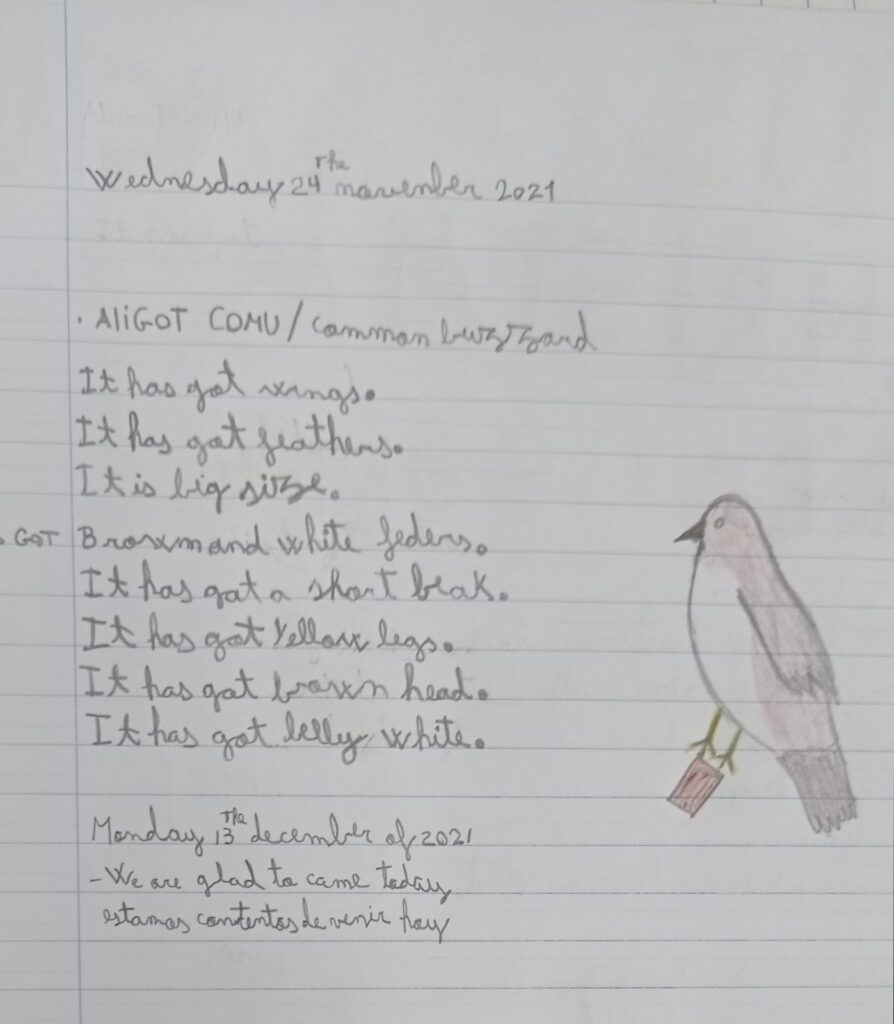 Wednesday 24 The november 2021
. AliGOT COMU / comman buzzard
It has got wings.
It has got feathers.
It is big size.
. GOT Brown and white feders.
It has got a short beak.
It has got Yellow legs.
It has got brown head.
It has got belly white.
Monday 13 The december of 2021
- We are glad to came today
estamos contentos de venir hoy